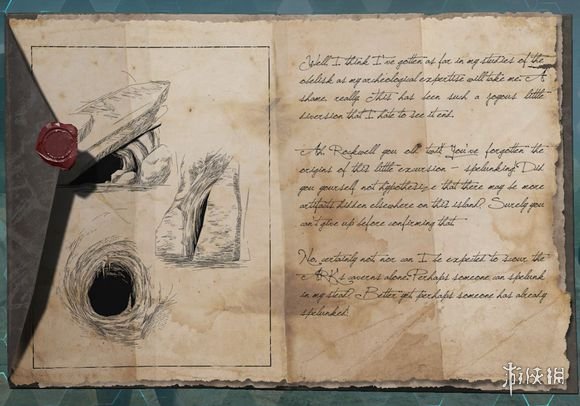 Well, I think I've gotten as far in my studies of the
obelisk as my archeological expertise will take me. A
shame, really. This has been such a joyous little
diversion that I hate to see it end.
Ah, Rockwell you old twit! You've forgotten the
origins of this little excursion - spelunking! Did
you yourself not hypothesize that there may be more
artifacts hidden elsewhere on this island. Surely you
can't give up before confirming that.
No, certainly not nor can I be expected to scour the
ARK's caverns alone. Perhaps someone can spelunk
in my stead? Better yet, perhaps someone has already
spelunked!
游侠网